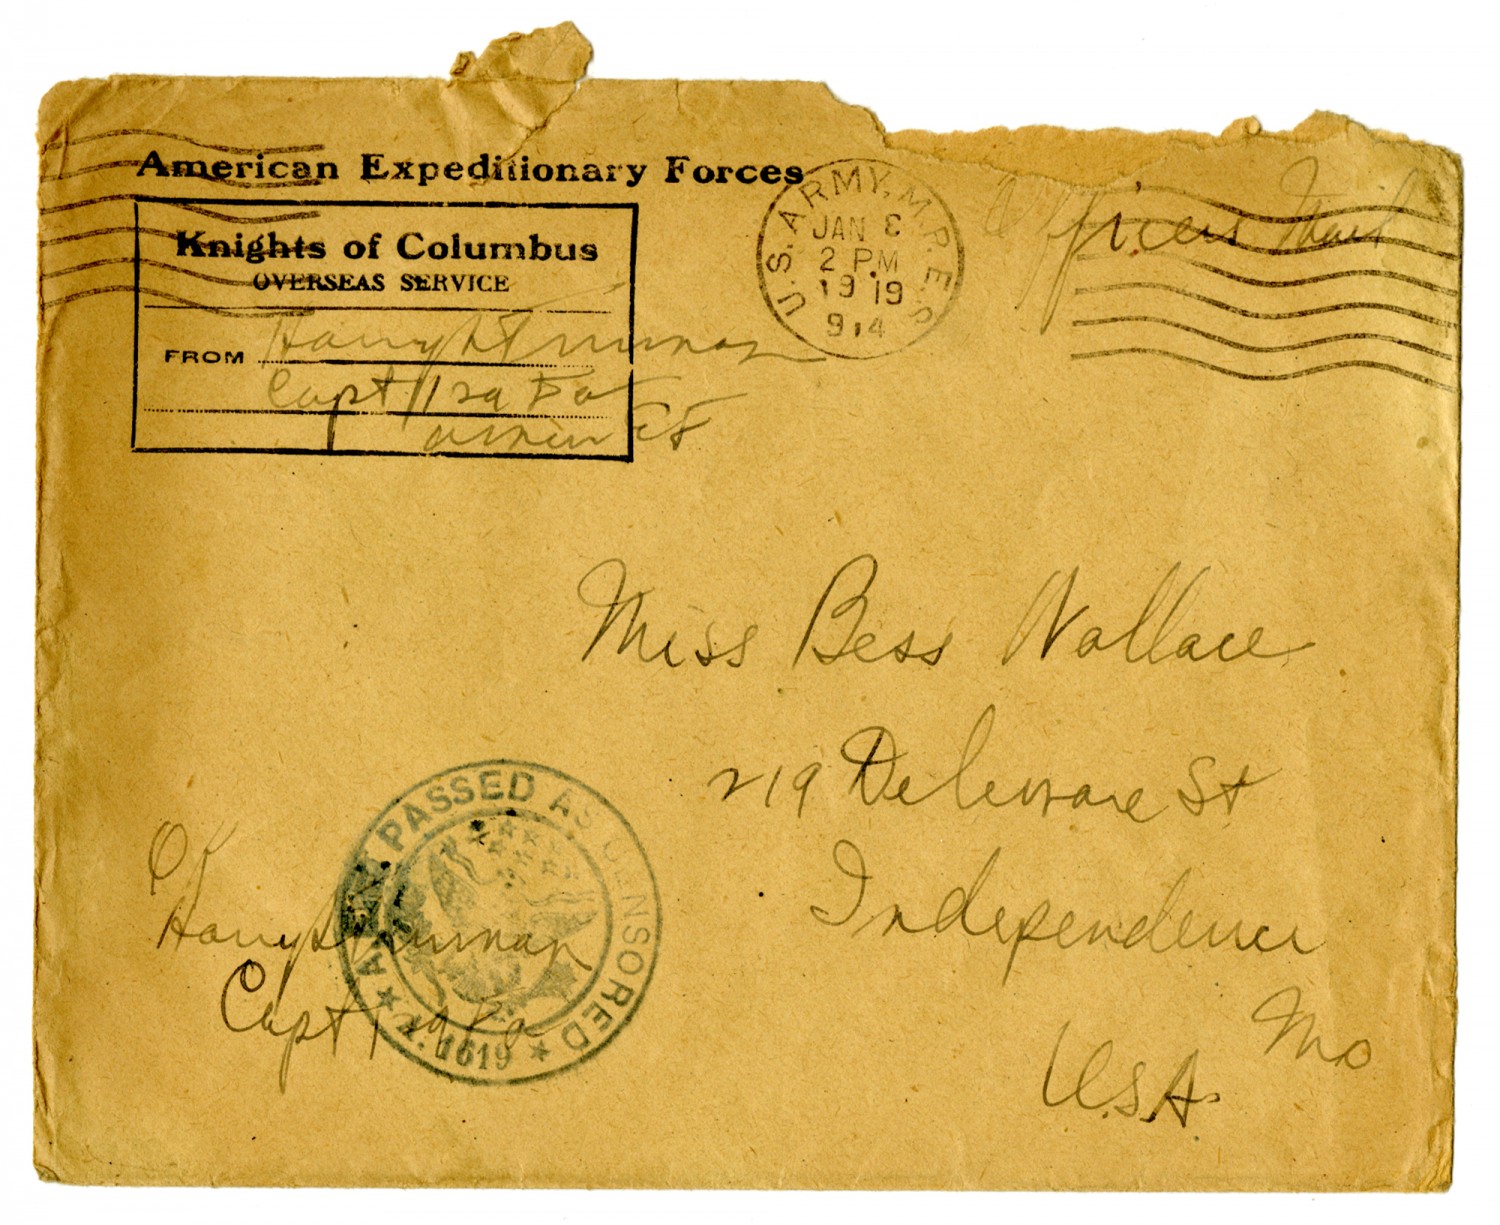 American Expeditionary Forces
Knights of Columbus
OVERSEAS SERVICE
FROM Harry S Truman
Capt 129 FA
American EF
U.S. ARMY. M.P.E.S.
JAN 8
2 PM
19 19
914
Officers Mail
Miss Bess Wallace
219 Deleware St
Independence
Mo
U.S.A.
OK
Harry S Truman
Capt 129 FA
A.E.F. PASSED AS CENSORED
A. 1619